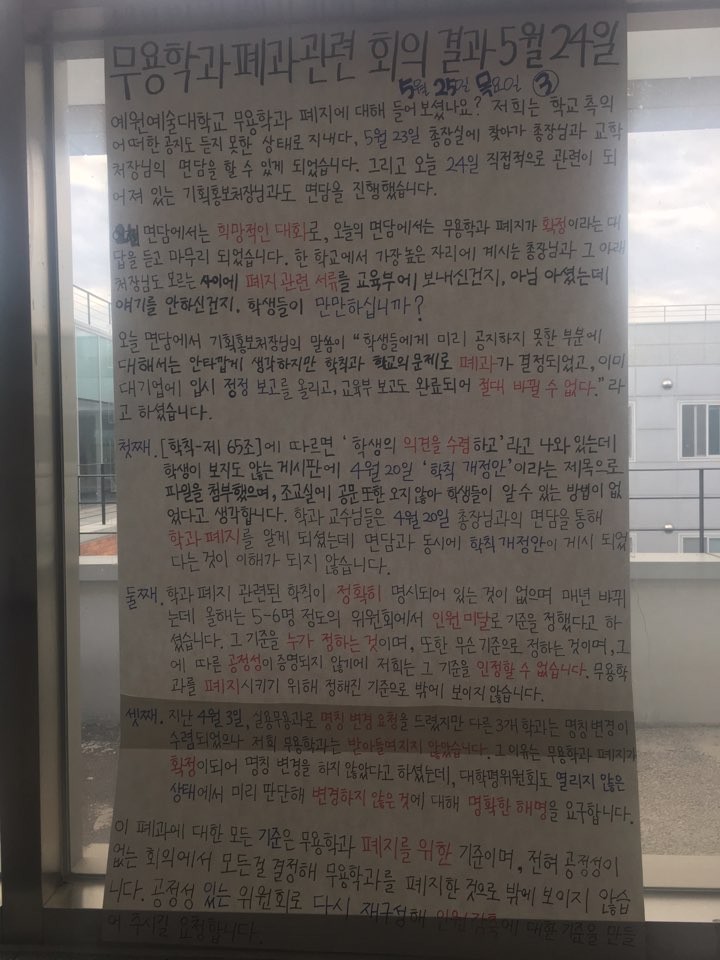 무용학과 폐과 관련 회의 결과 5월 24일
5월 25일 목요일 ③
예원예술대학교 무용학과 폐지에 대해 들어 보셨나요? 저희는 학교측의
어떠한 공지도 듣지 못한 상태로 지내다, 5월 23일 총장실에 찾아가 총장님과 교학
처장님의 면담을 할 수 있게 되었습니다. 그리고 오늘 24일 직접적으로 관련이 되
어져 있는 기획홍보처장님과도 면담을 진행했습니다.
면담에서는 희망적인 대화로, 오늘의 면담에서는 무용학과 폐지가 확정이라는 대
답을 듣고 마무리 되었습니다. 한 학교에서 가장 높은 자리에 계시는 총장님과 그 아래
처장님도 모르는 사이에 폐지 관련 서류를 교육부에 보내신건지, 아님 아셨는데
얘기를 안하신건지. 학생들이 만만하십니까?
오늘 면담에서 기획홍보처장님의 말씀이 "학생들에게 미리 공지하지 못한 부분에
대해서는 안타깝게 생각하지만 학칙과 학교의 문제로 폐과가 결정되었고, 이미
대기업에 입시 정정 보고를 올리고, 교육부 보고도 완료되어 절대 바뀔 수 없다." 라
고 하셨습니다.
첫째. [학칙-제 65조]에 따르면 '학생의 의견을 수렴하고'라고 나와 있는데
학생이 보지도 않는 게시판에 4월 20일 '학칙 개정안'이라는 제목으로
파일을 첨부했으며, 조교실에 공문 또한 오지 않아 학생들이 알 수 있는 방법이 없
었다고 생각합니다. 학과 교수님들은 4월 20일 총장님과의 면담을 통해
학과 폐지를 알게 되셨는데 면담과 동시에 학칙 개정안이 게시 되었
다는 것이 이해가 되지 않습니다.
둘째. 학과 폐지 관련된 학칙이 정확히 명시되어 있는 것이 없으며 매년 바뀌
는데 올해는 5-6명 정도의 위원회에서 인원 미달로 기준을 정했다고 하
셨습니다. 그 기준을 누가 정하는 것이며, 또한 무슨 기준으로 정하는 것이며, 그
에 따른 공정성이 증명되지 않기에 저희는 그 기준을 인정할 수 없습니다. 무용학
과를 폐지시키기 위해 정해진 기준으로 밖에 보이지 않습니다.
셋째. 지난 4월 3일, 실용무용과로 명칭 변경 요청을 드렸지만 다른 3개 학과는 명칭변경이
수렴되었으나 저희 무용학과는 받아들여지지 않았습니다. 그 이유는 무용학과 폐지가
확정이되어 명칭 변경을 하지 않았다고 하셨는데, 대학평위원회도 열리지 않은
상태에서 미리 판단해 변경하지 않은 것에 대해 명확한 해명을 요구합니다.
이 폐과에 대한 모든 기준은 무용학과 폐지를 위한 기준이며, 전혀 공정성이
없는 회의에서 모든걸 결정해 무용학과를 폐지한 것으로 밖에 보이지 않습
니다. 공정성 있는 위원회로 다시 재구성해 대한 기준을 만들
어 주시길 요청합니다.